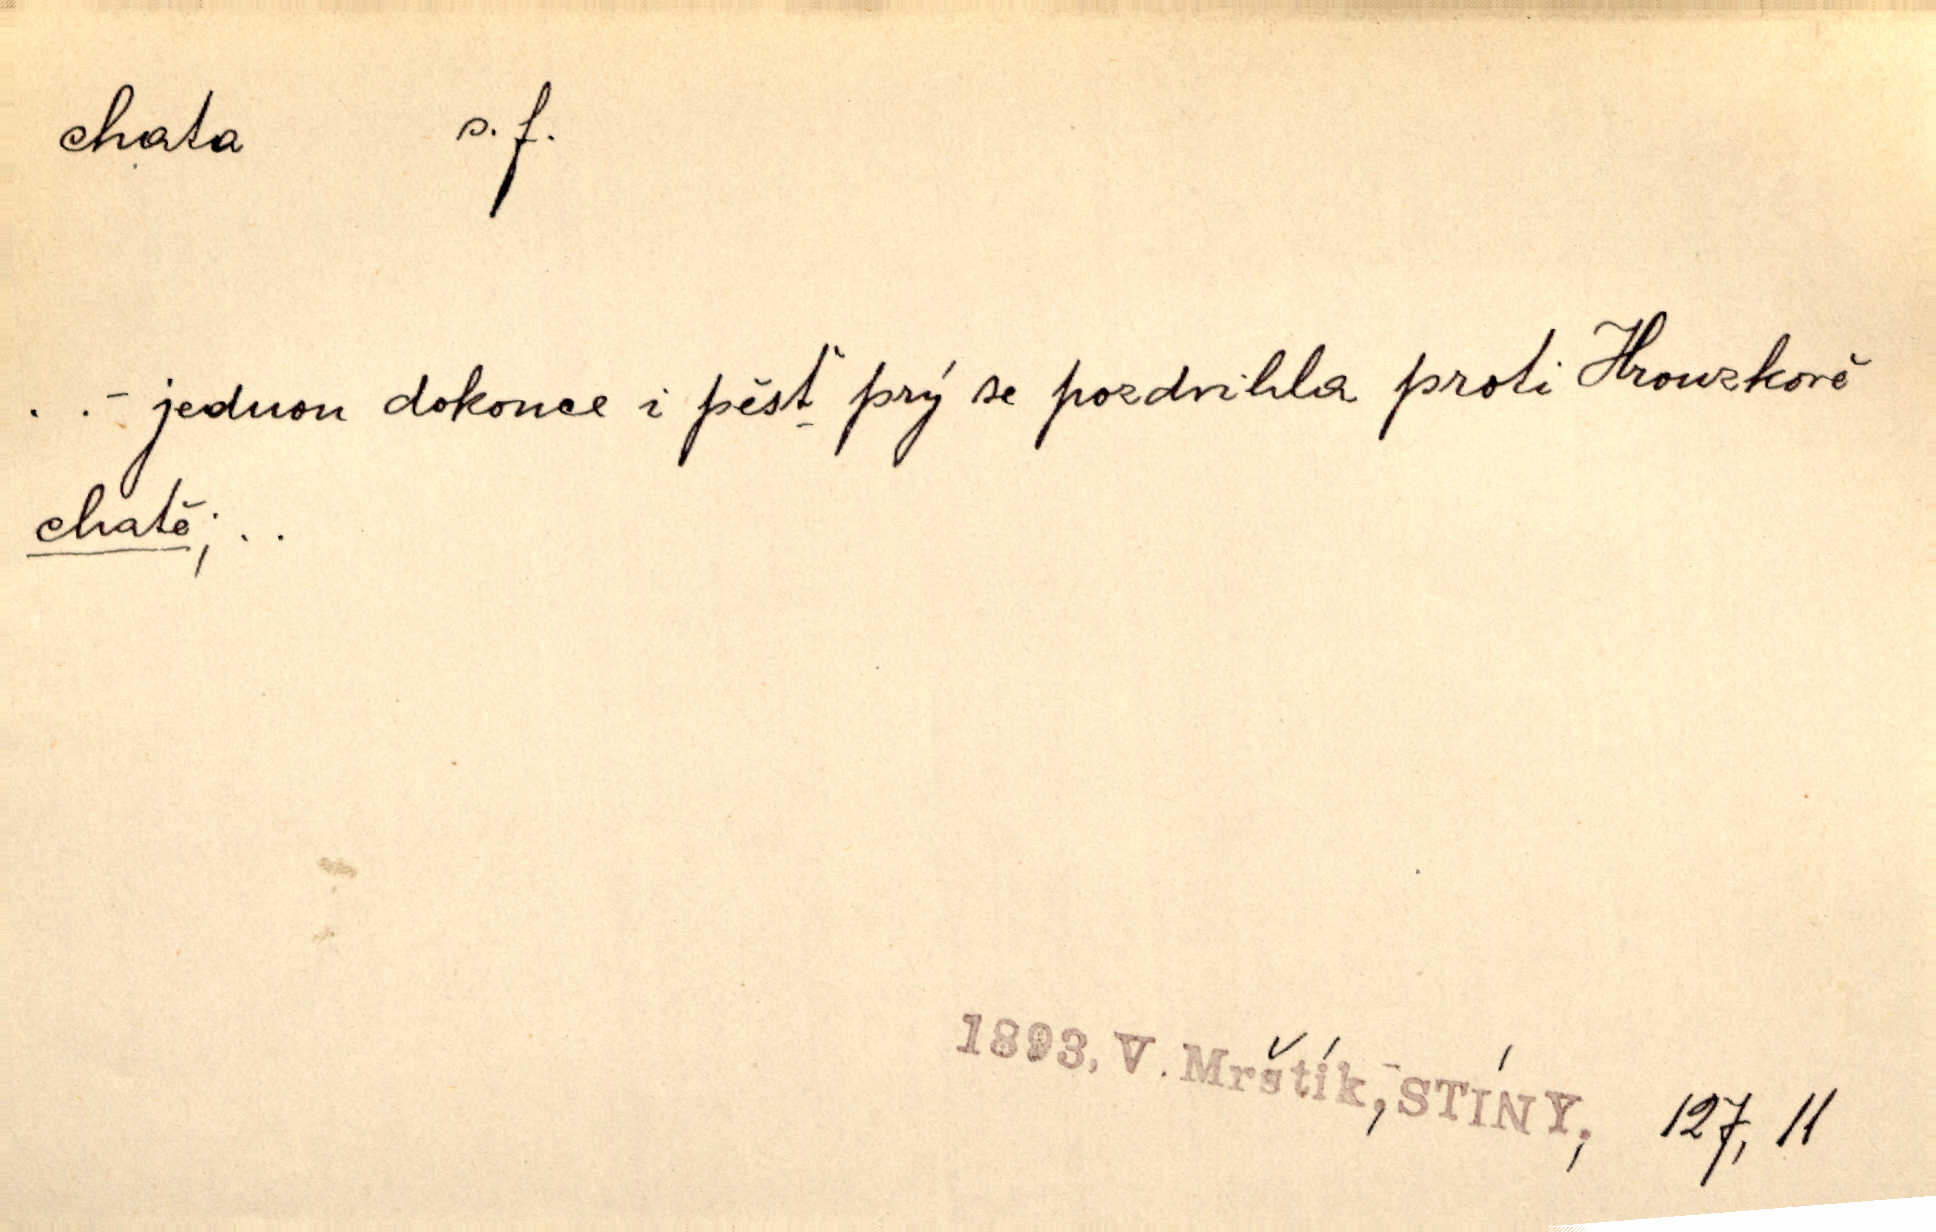 chata s. f.
. . - jednou dokonce i pěsť prý se pozdvihla proti Hrouzkově
chatě; . .
1893, V. Mrštík, STÍNY, 127, 11